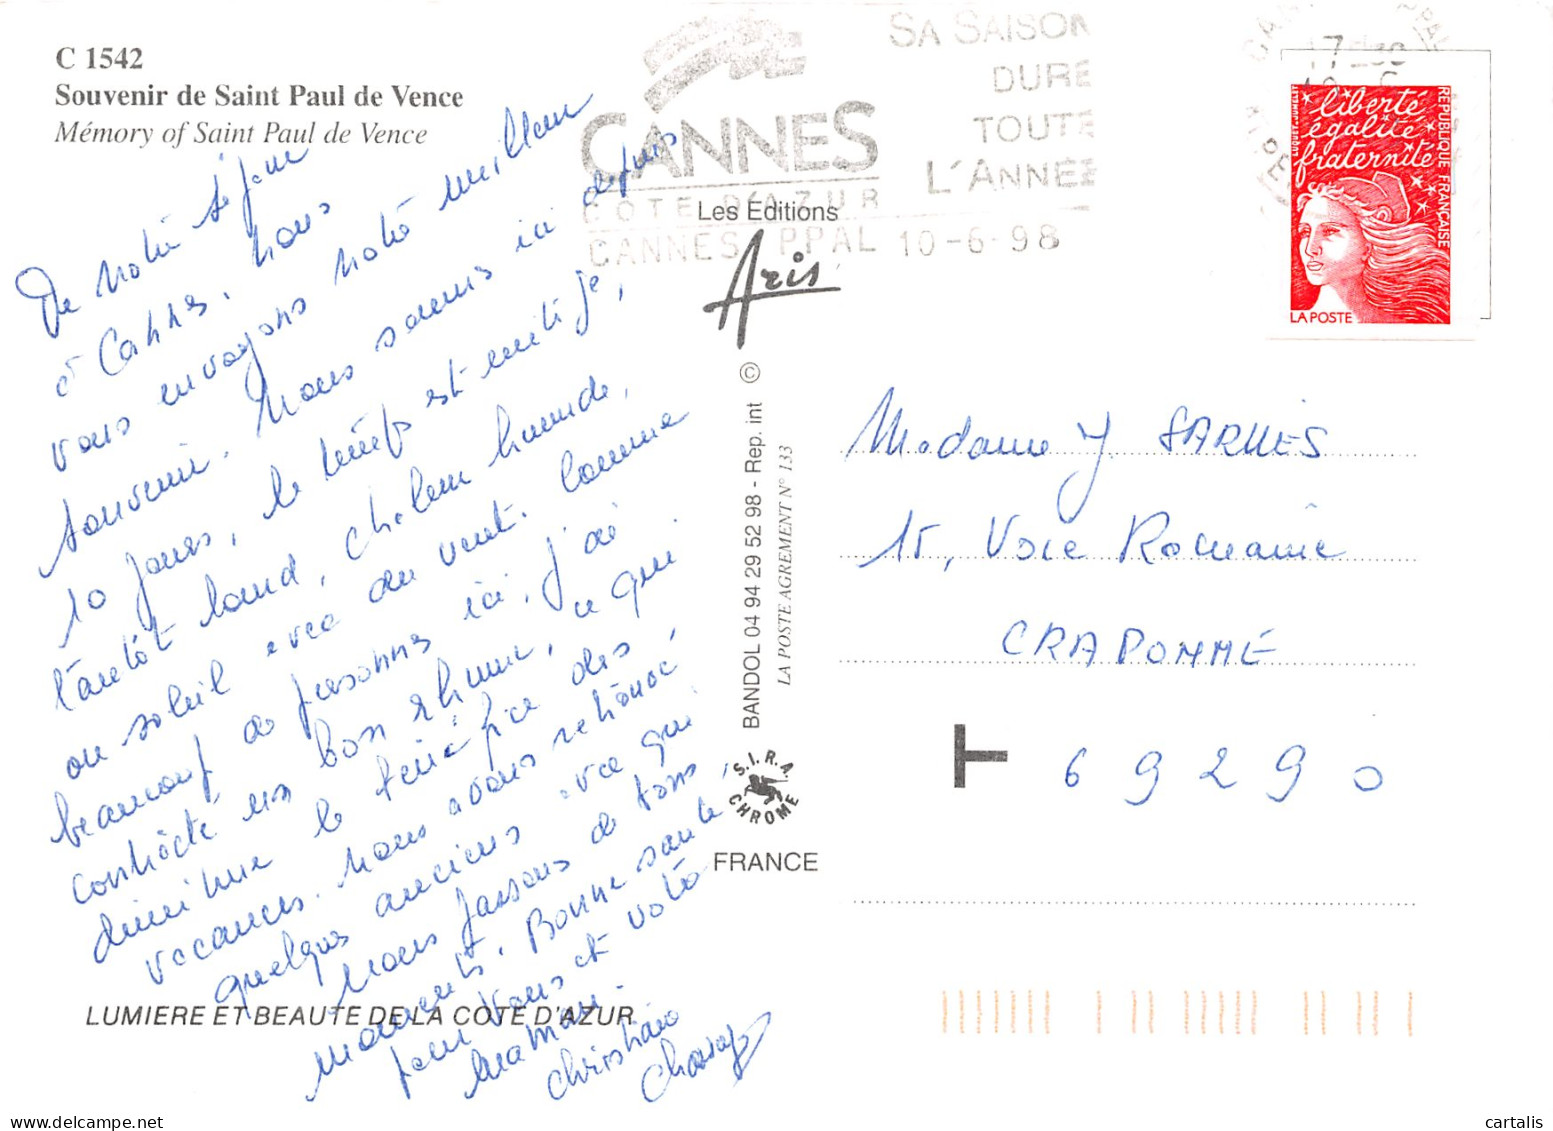 C 1542
Souvenir de Saint Paul de Vence
Mémory of Saint Paul de Vence
De notre séjour
à Cannes, nous
vous envoyons notre meilleur
souvenir. Nous sommes ici depuis
10 jours, le temps est mitigé,
tantôt lourd, chaleur humide,
ou soleil avec du vent. Comme
beaucoup de personnes ici, j'ai
contracté un bon rhume, ce qui
diminue le bénéfice des
vacances. Nous avons retrouvé
quelques anciens avec qui
nous passons de bons
moments. Bonne santé,
pour vous et votre
maman.
Christiane
LUMIERE ET BEAUTE DE LA COTE D'AZUR
CANNES
CÔTE D'AZUR
CANNES PPAL 10-6-98
SA SAISON
DURE
TOUTE
L'ANNÉE
Les Editions
Aris
BANDOL 04 94 29 52 98 - Rep. int ©
LA POSTE AGREMENT N° 133
S.I.R.A.
CHROME
FRANCE
liberté
égalité
fraternité
REPUBLIQUE FRANÇAISE
LA POSTE
Madame J. SARNES
15, Voie Romaine
CRAPONNE
T 69290
cartalis